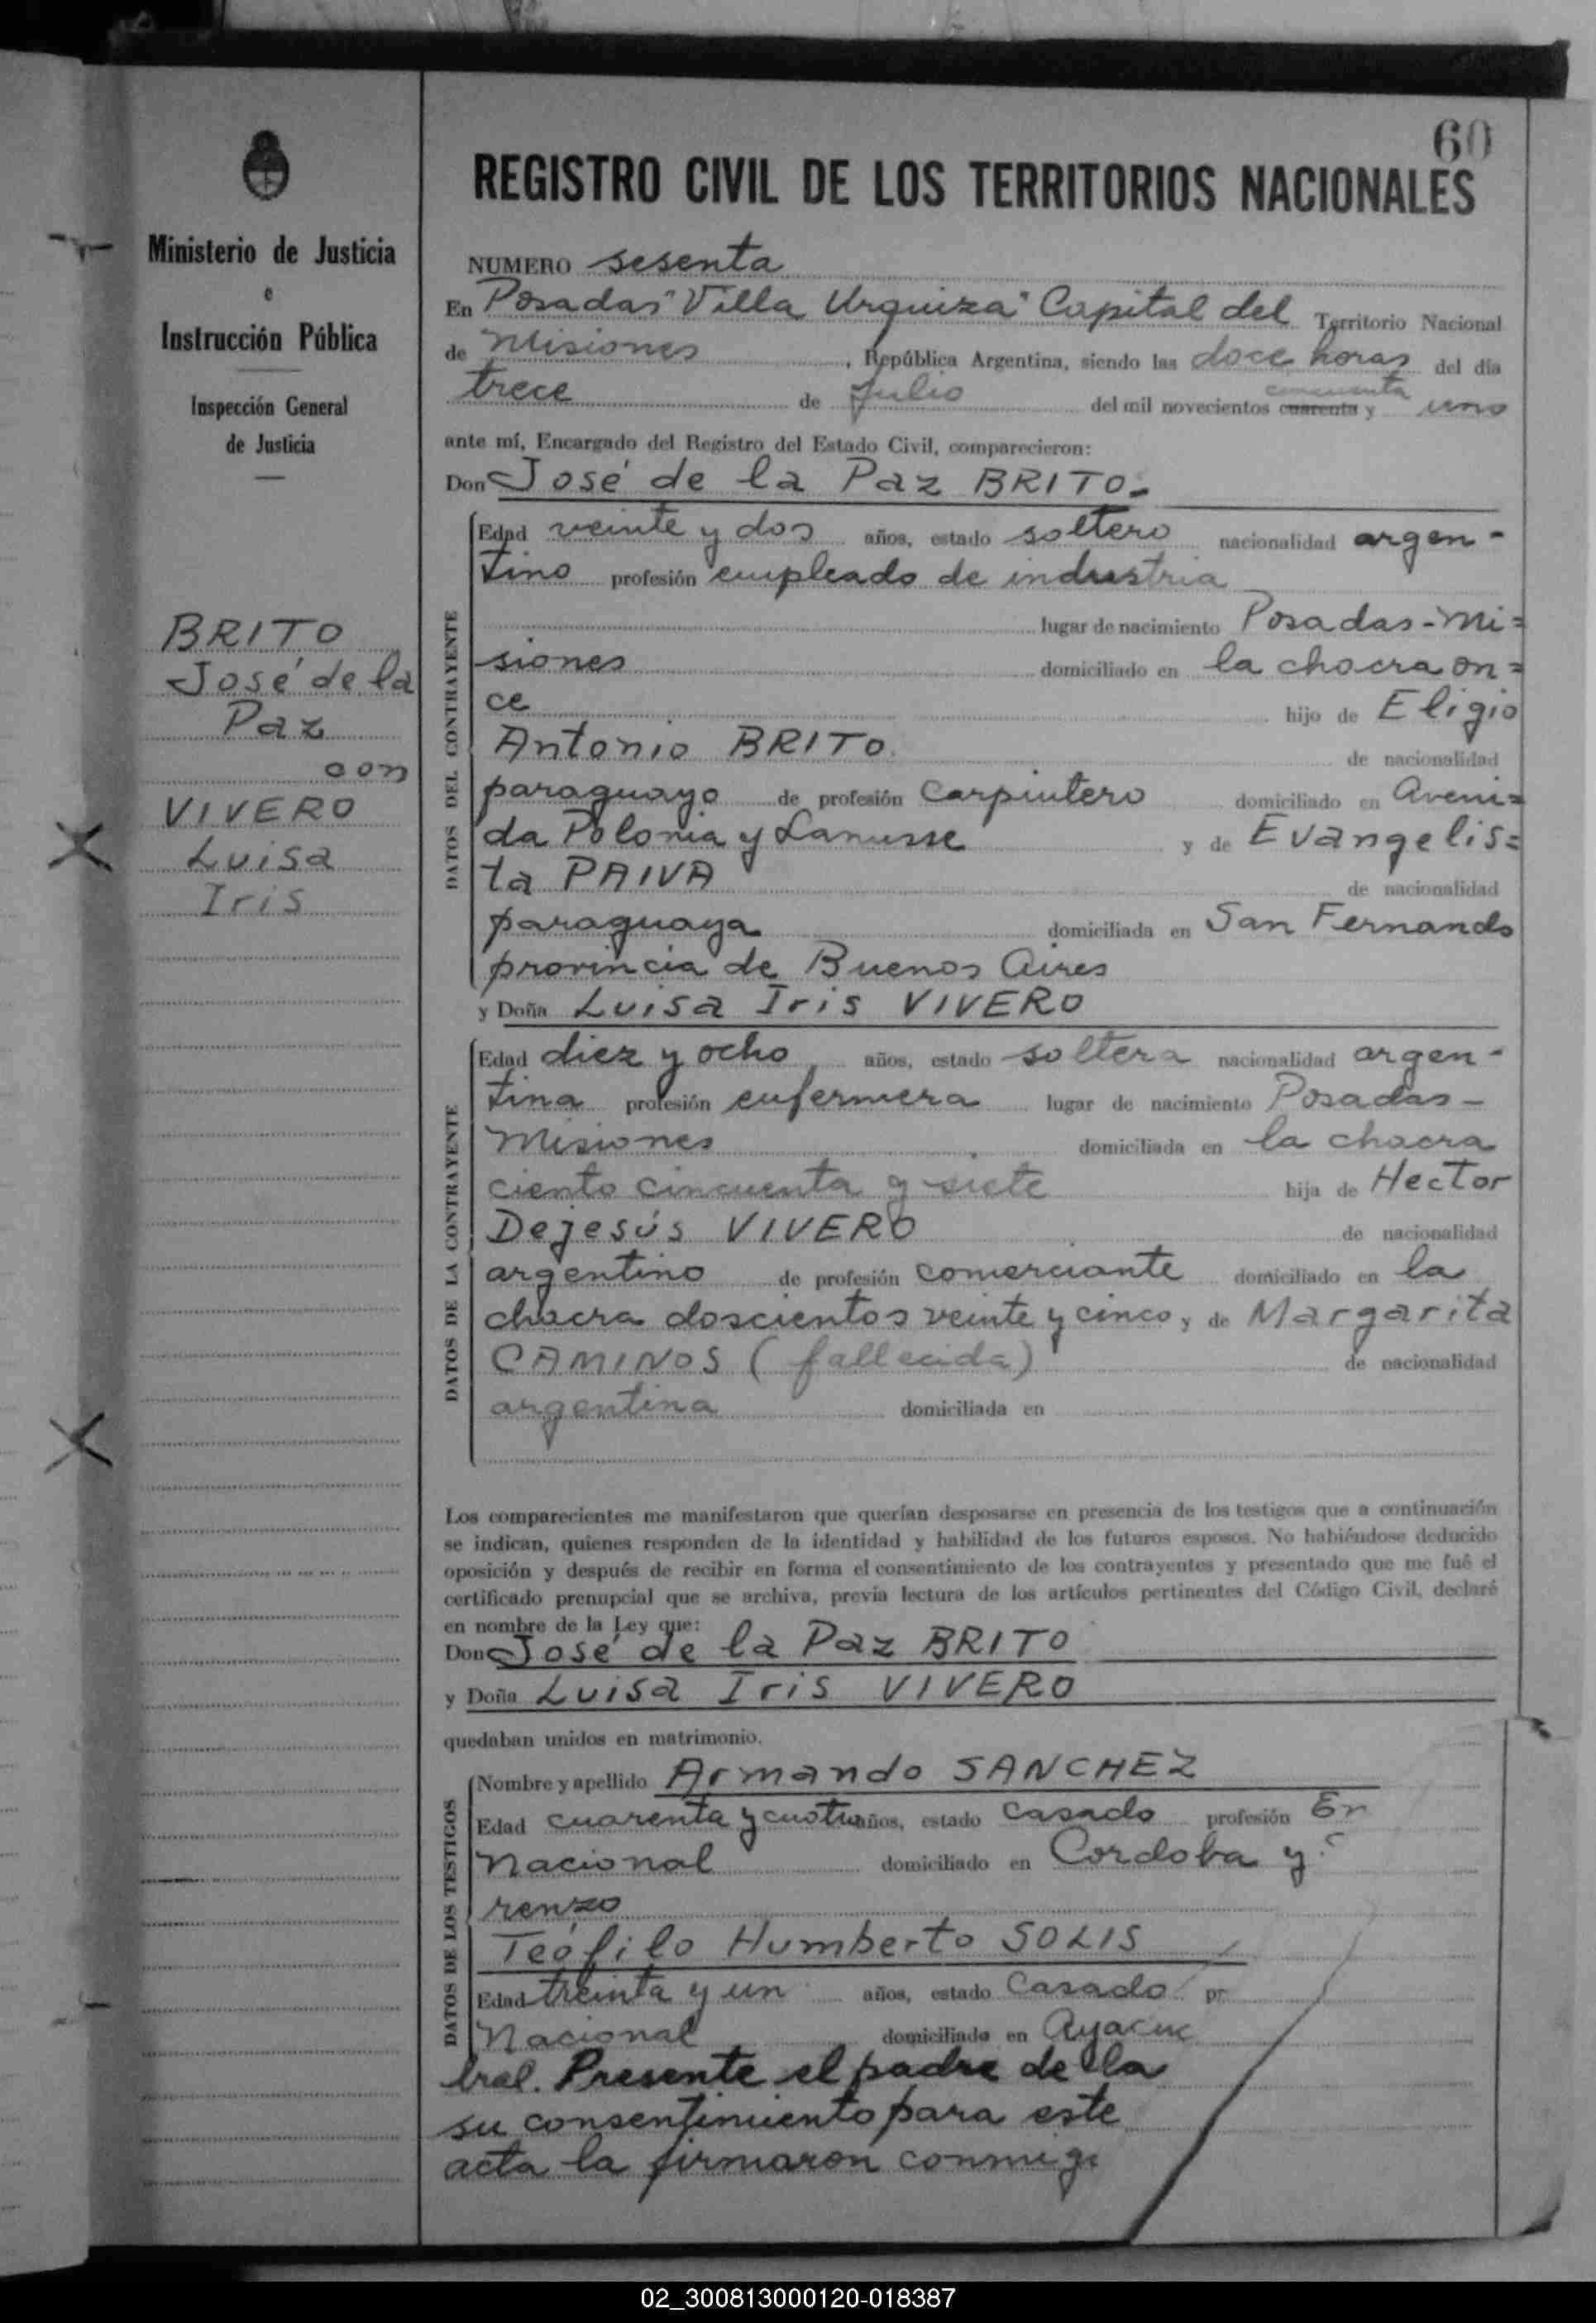 60
REGISTRO CIVIL DE LOS TERRITORIOS NACIONALES
Ministerio de Justicia
e
Instrucción Pública
Inspección General
de Justicia
BRITO
José de la
Paz
con
VIVERO
Luisa
Iris
NUMERO sesenta
En Posadas "Villa Urquiza" Capital del Territorio Nacional
de Misiones, República Argentina, siendo las doce horas del día
trece de Julio del mil novecientos cuarenta cincuenta y uno
ante mí, Encargado del Registro del Estado Civil, comparecieron:
Don José de la Paz BRITO.-
DATOS DEL CONTRAYENTE
Edad veinte y dos años, estado soltero nacionalidad argen-
tino profesión empleado de industria
lugar de nacimiento Posadas-Mi=
siones domiciliado en la chacra on=
ce hijo de Eligio
Antonio BRITO de nacionalidad
paraguayo de profesión Carpintero domiciliado en Aveni=
da Polonia y Lanusse y de Evangelis=
ta PAIVA de nacionalidad
paraguaya domiciliada en San Fernando
provincia de Buenos Aires
y Doña Luisa Iris VIVERO
DATOS DE LA CONTRAYENTE
Edad diez y ocho años, estado soltera nacionalidad argen-
tina profesión enfermera lugar de nacimiento Posadas-
Misiones domiciliada en la chacra
ciento cincuenta y siete hija de Hector
Dejesús VIVERO de nacionalidad
argentino de profesión comerciante domiciliado en la
chacra doscientos veinte y cinco y de Margarita
CAMINOS (fallecida) de nacionalidad
argentina domiciliada en
Los comparecientes me manifestaron que querían desposarse en presencia de los testigos que a continuación
se indican, quienes responden de la identidad y habilidad de los futuros esposos. No habiéndose deducido
oposición y después de recibir en forma el consentimiento de los contrayentes y presentado que me fué el
certificado prenupcial que se archiva, previa lectura de los artículos pertinentes del Código Civil, declaré
en nombre de la Ley que:
Don José de la Paz BRITO
y Doña Luisa Iris VIVERO
quedaban unidos en matrimonio.
DATOS DE LOS TESTIGOS
Nombre y apellido Armando SANCHEZ
Edad cuarenta y cuatro años, estado casado profesión
Nacional domiciliado en Cordoba y
renzo
Teófilo Humberto SOLIS
Edad treinta y un años, estado Casado pr
Nacional domiciliado en Ayacuc
bral. Presente el padre de la
su consentimiento para este
acta la firmaron conmigo
02_300813000120-018387